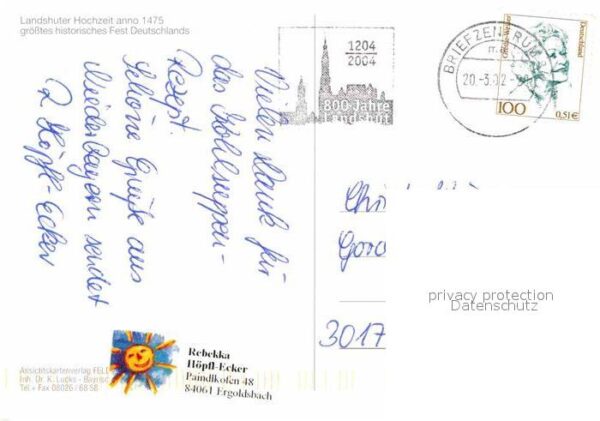 Landshuter Hochzeit anno 1475
größtes historisches Fest Deutschlands
Vielen Dank für
das Kohlsuppen-
rezept.
Schöne Grüße aus
Niederbayern sendet
R. Höpfl-Ecker
1204
2004
800 Jahre
Landshut
BRIEFZENTRUM
20.-3.02
Deutschland
100
0,51€
3017
privacy protection
Datenschutz
Rebekka
Höpfl-Ecker
Paindlkofen 48
84061 Ergoldsbach
Ansichtskartenverlag
Inh. Dr. K. Lucks - Bayrisc
Tel + Fax 08026 / 68 58